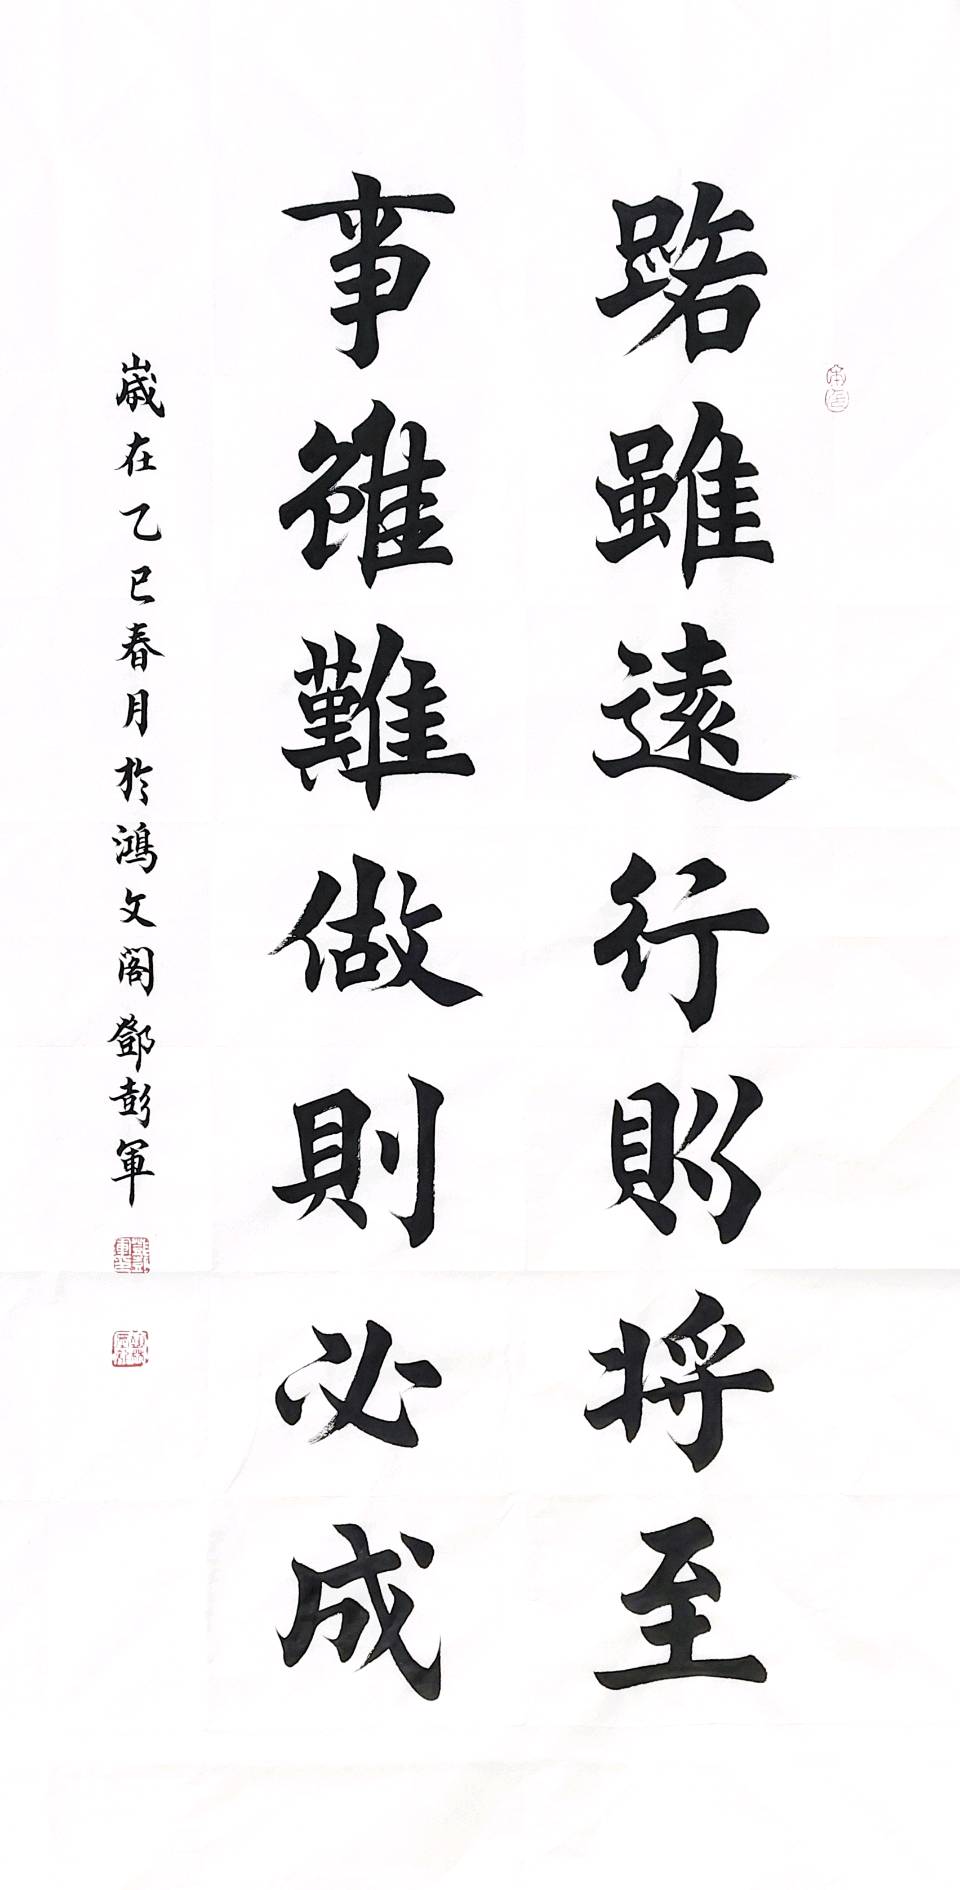 路雖遠行則將至
事雖難做則必成
歲在乙巳春月於鴻文閣鄧彭軍